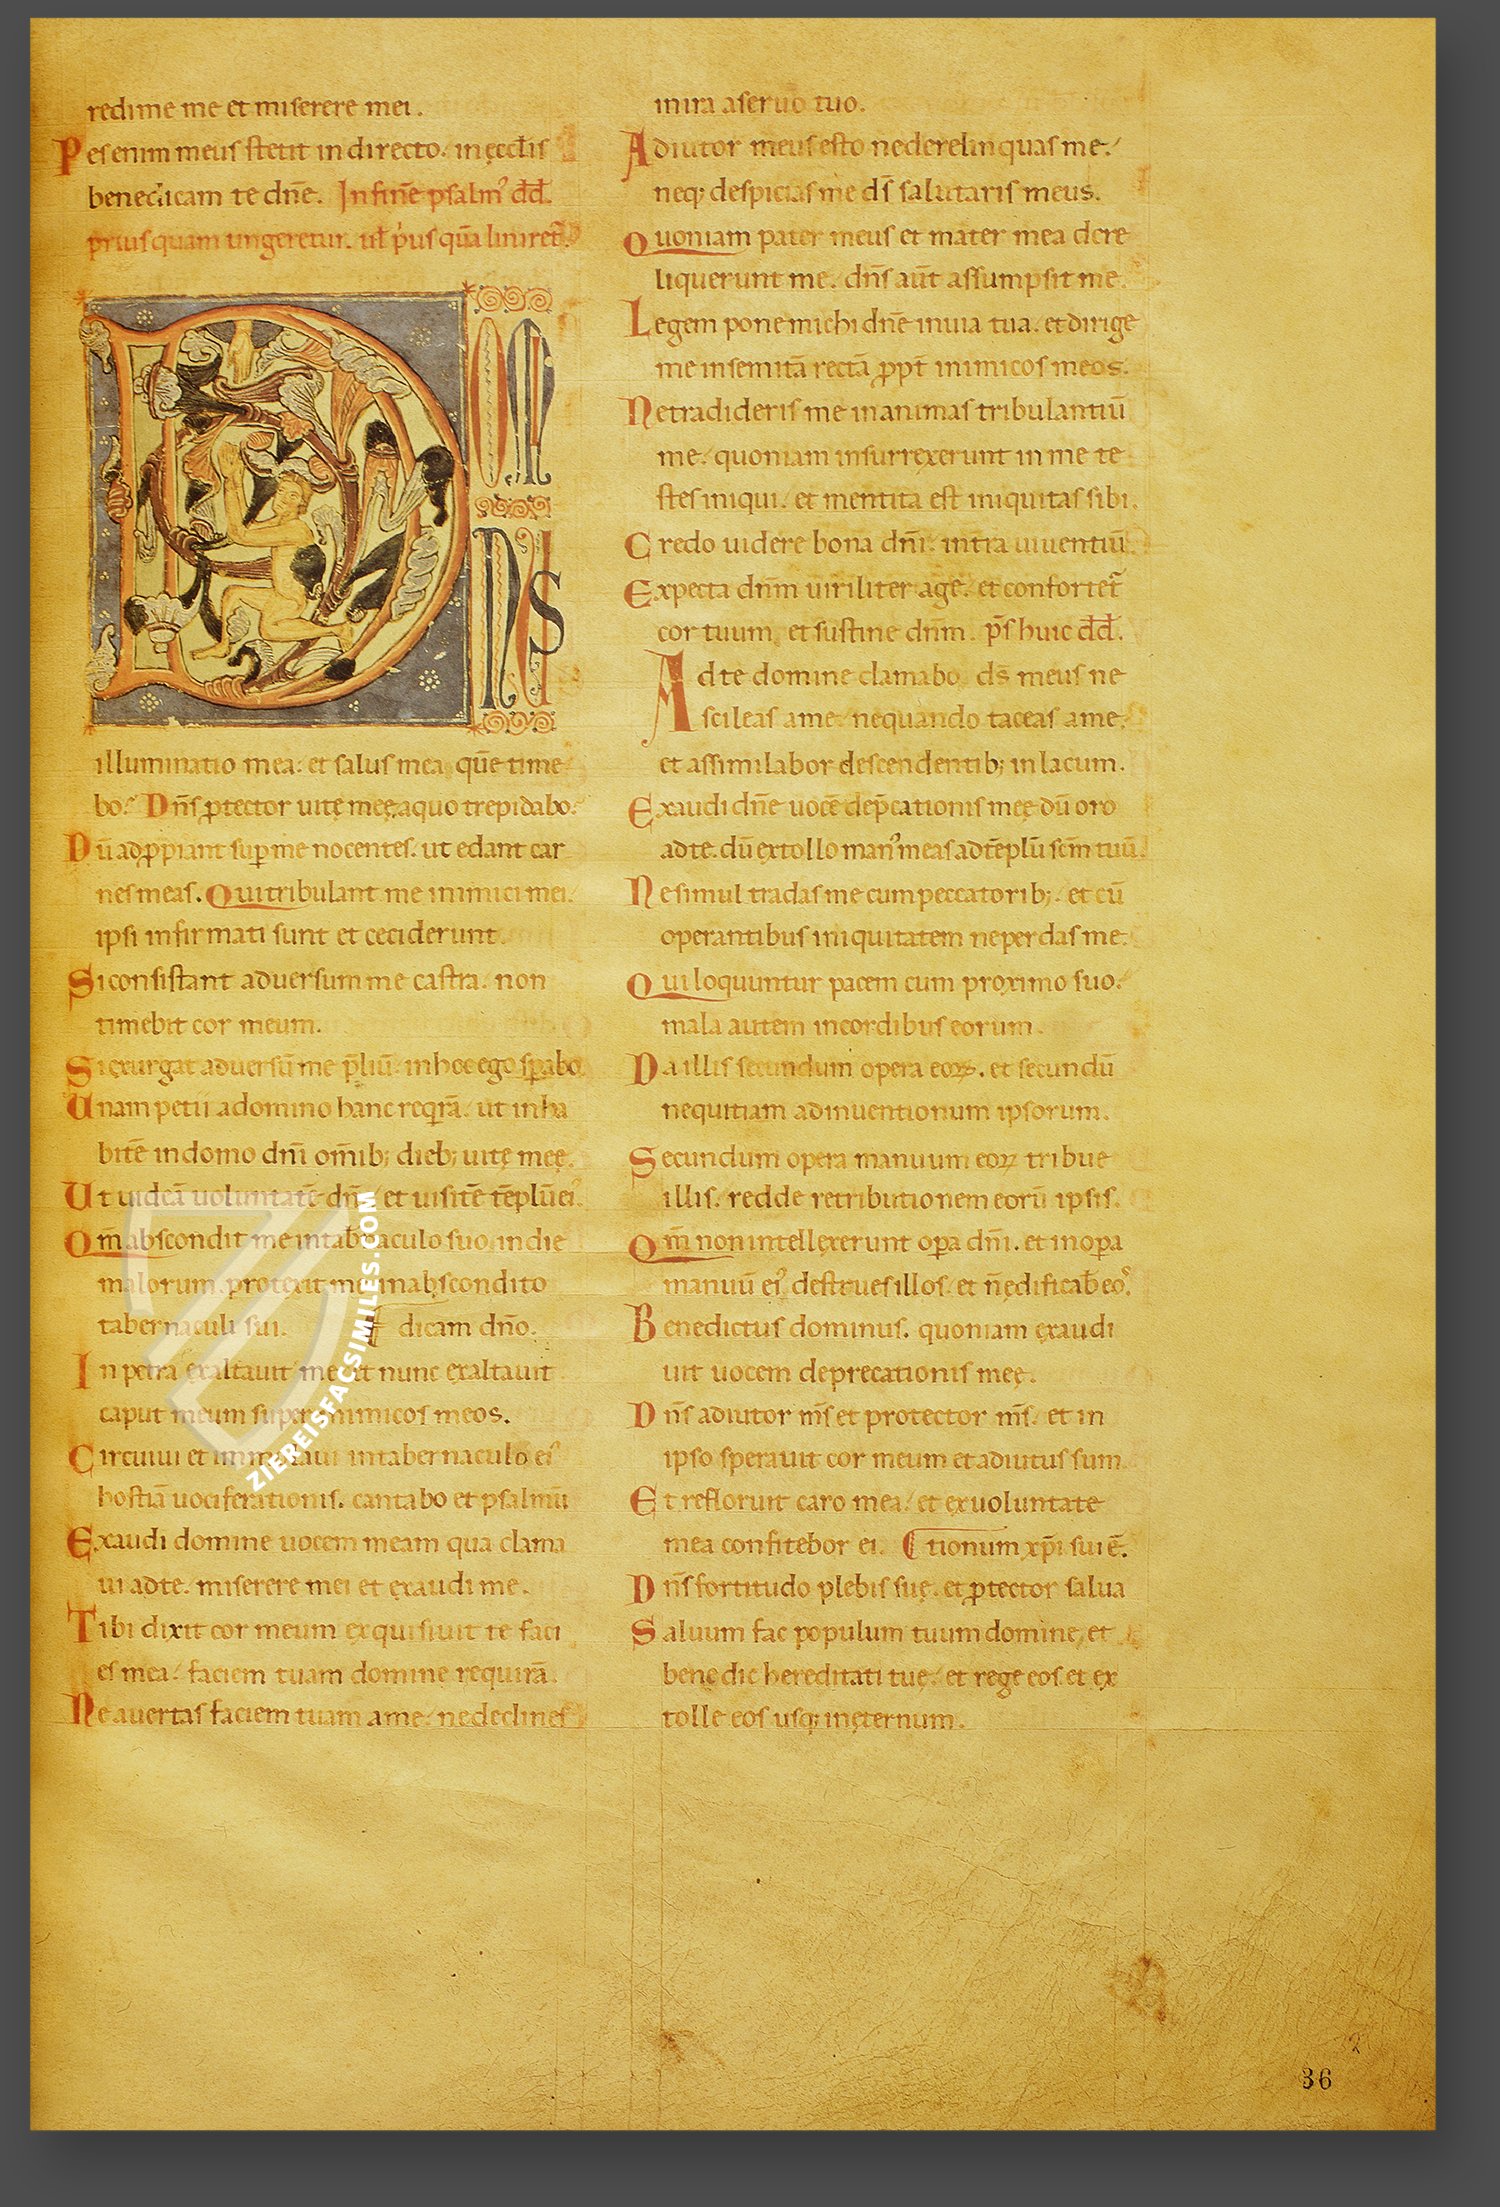 redime me et miserere mei.
Pes enim meus stetit in directo. in ęccl̄is
benedicam te dn̄e. In finē psalm᾽ dd̄.
priusquam ungeretur. ul̄ p̓us quā liniret᷑.
DOMI
NUS
illuminatio mea. et salus mea quē time
bo. Dn̄s ꝑtector uitę meę aquo trepidabo.
Dū adꝓpiant suꝑ me nocentes. ut edant car
nes meas. Qui tribulant me inimici mei.
ipsi infirmati sunt et ceciderunt.
Si consistant aduersum me castra. non
timebit cor meum.
Si exurgat aduersū me p̄liū. in hoc ego sꝑabo
Unam petii a domino hanc reqrā. ut inha
bitē in domo dn̄i om̄ib; dieb; uitę meę.
Ut uideā uoluntatē dn̄i et uisitē tēplū ei᾽.
Qm̄ abscondit me in tab̄naculo suo. in die
malorum. protexit me in abscondito
tabernaculi sui. dicam dn̄o.
In petra exaltauit me et nunc exaltauit
caput meum super inimicos meos.
Circuiui et immolaui in tabernaculo ei᾽
hostiā uociferationis. cantabo et psalmū
Exaudi domine uocem meam qua clama
ui ad te. miserere mei et exaudi me.
Tibi dixit cor meum exquisiuit te faci
es mea. faciem tuam domine requirā.
Ne auertas faciem tuam a me. ne declines
in ira a seruo tuo.
Adiutor meus esto ne derelinquas me.
neq; despicias me ds̄ salutaris meus.
Quoniam pater meus et mater mea dere
liquerunt me. dn̄s aūt assumpsit me.
Legem pone michi dn̄e in uia tua. et dirige
me in semitā rectā ꝓpt̄ inimicos meos.
Ne tradideris me in animas tribulantiū
me. quoniam insurrexerunt in me te
stes iniqui. et mentita est iniquitas sibi.
Credo uidere bona dn̄i. in tr̄a uiuentiū.
Expecta dnm̄ uiriliter age. et confortet᷑
cor tuum et sustine dnm̄. ps̄ huic dd̄.
Ad te domine clamabo ds̄ meus ne
scileas a me. nequando taceas a me.
et assimilabor descendentib; in lacum.
Exaudi dn̄e uocē dep̄cationis meę dū oro
ad te. dū extollo man᾽ meas ad tēplū scm̄ tuū.
Ne simul tradas me cum peccatorib;. et cū
operantibus iniquitatem ne perdas me.
Qui loquuntur pacem cum proximo suo.
mala autem in cordibus eorum.
Da illis secundum opera eoꝝ. et secundū
nequitiam adinuentionum ipsorum.
Secundum opera manuum eoꝝ tribue
illis. redde retributionem eorū ipsis.
Qm̄ non intellexerunt oꝑa dn̄i. et in oꝑa
manuū ei᾽ destrues illos. et n̄ ędificab̄ eo᾽.
Benedictus dominus. quoniam exaudi
uit uocem deprecationis meę.
Dn̄s adiutor ms̄ et protector ms̄. et in
ipso sperauit cor meum et adiutus sum.
Et refloruit caro mea. et ex uoluntate
mea confitebor ei. tionum xp̄i sui ē.
Dn̄s fortitudo plebis suę. et ꝑtector salua
Saluum fac populum tuum domine, et
benedic hereditati tuę. et rege eos et ex
tolle eos usq; in ęternum.
36
ZIEREISFACSIMILES.COM